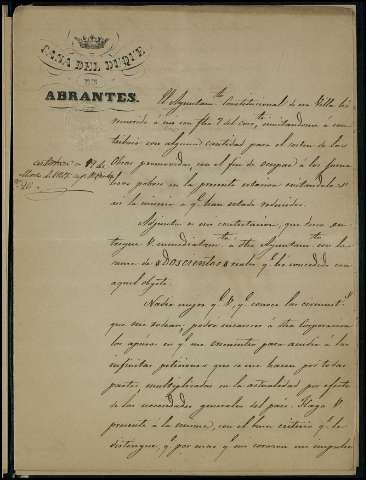 CASA DEL DUQUE
DE
ABRANTES.
El Ayuntamto. Constitucional de esa Villa ha
recurrido á mi con fha 7 del corrte. invitandome á con-
tribuir con alguna cantidad para el sosten de las
Obras promovidas, con el fin de ocupar á los jorna
leros pobres en la presente estacion
en la miseria á q. han estado reducidos.
Adjunta es mi contestacion, que
tregue V. inmediatamte. á dho Ayuntamto. con la
suma de "Doscientos" reales q. he concedido con
aquel objeto.
Nadie mejor q. V. q. conoce las
que me rodean, podrá á dha Corporacion
los apuros en q. me encuentro para acudir á las
infinitas peticiones que se me hacen por todas
partes, multiplicadas en la actualidad por efecto
de las necesidades generales del pais. Haga V.
presente á la misma, con el buen criterio q. le
distingue, q. por mas q. mi corazon me impulse